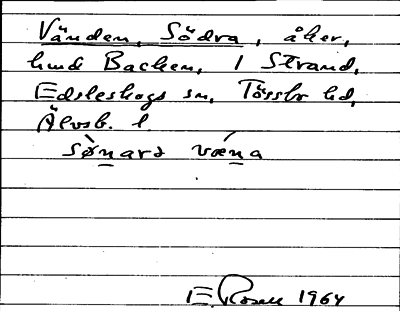 Vänden, Södra, åker,
hmd Backen, 1 Strand,
Edsleskogs sn, Tössbo hd,
Älvsb. l
sø̀narɜ vǽna
E Rosell 1964